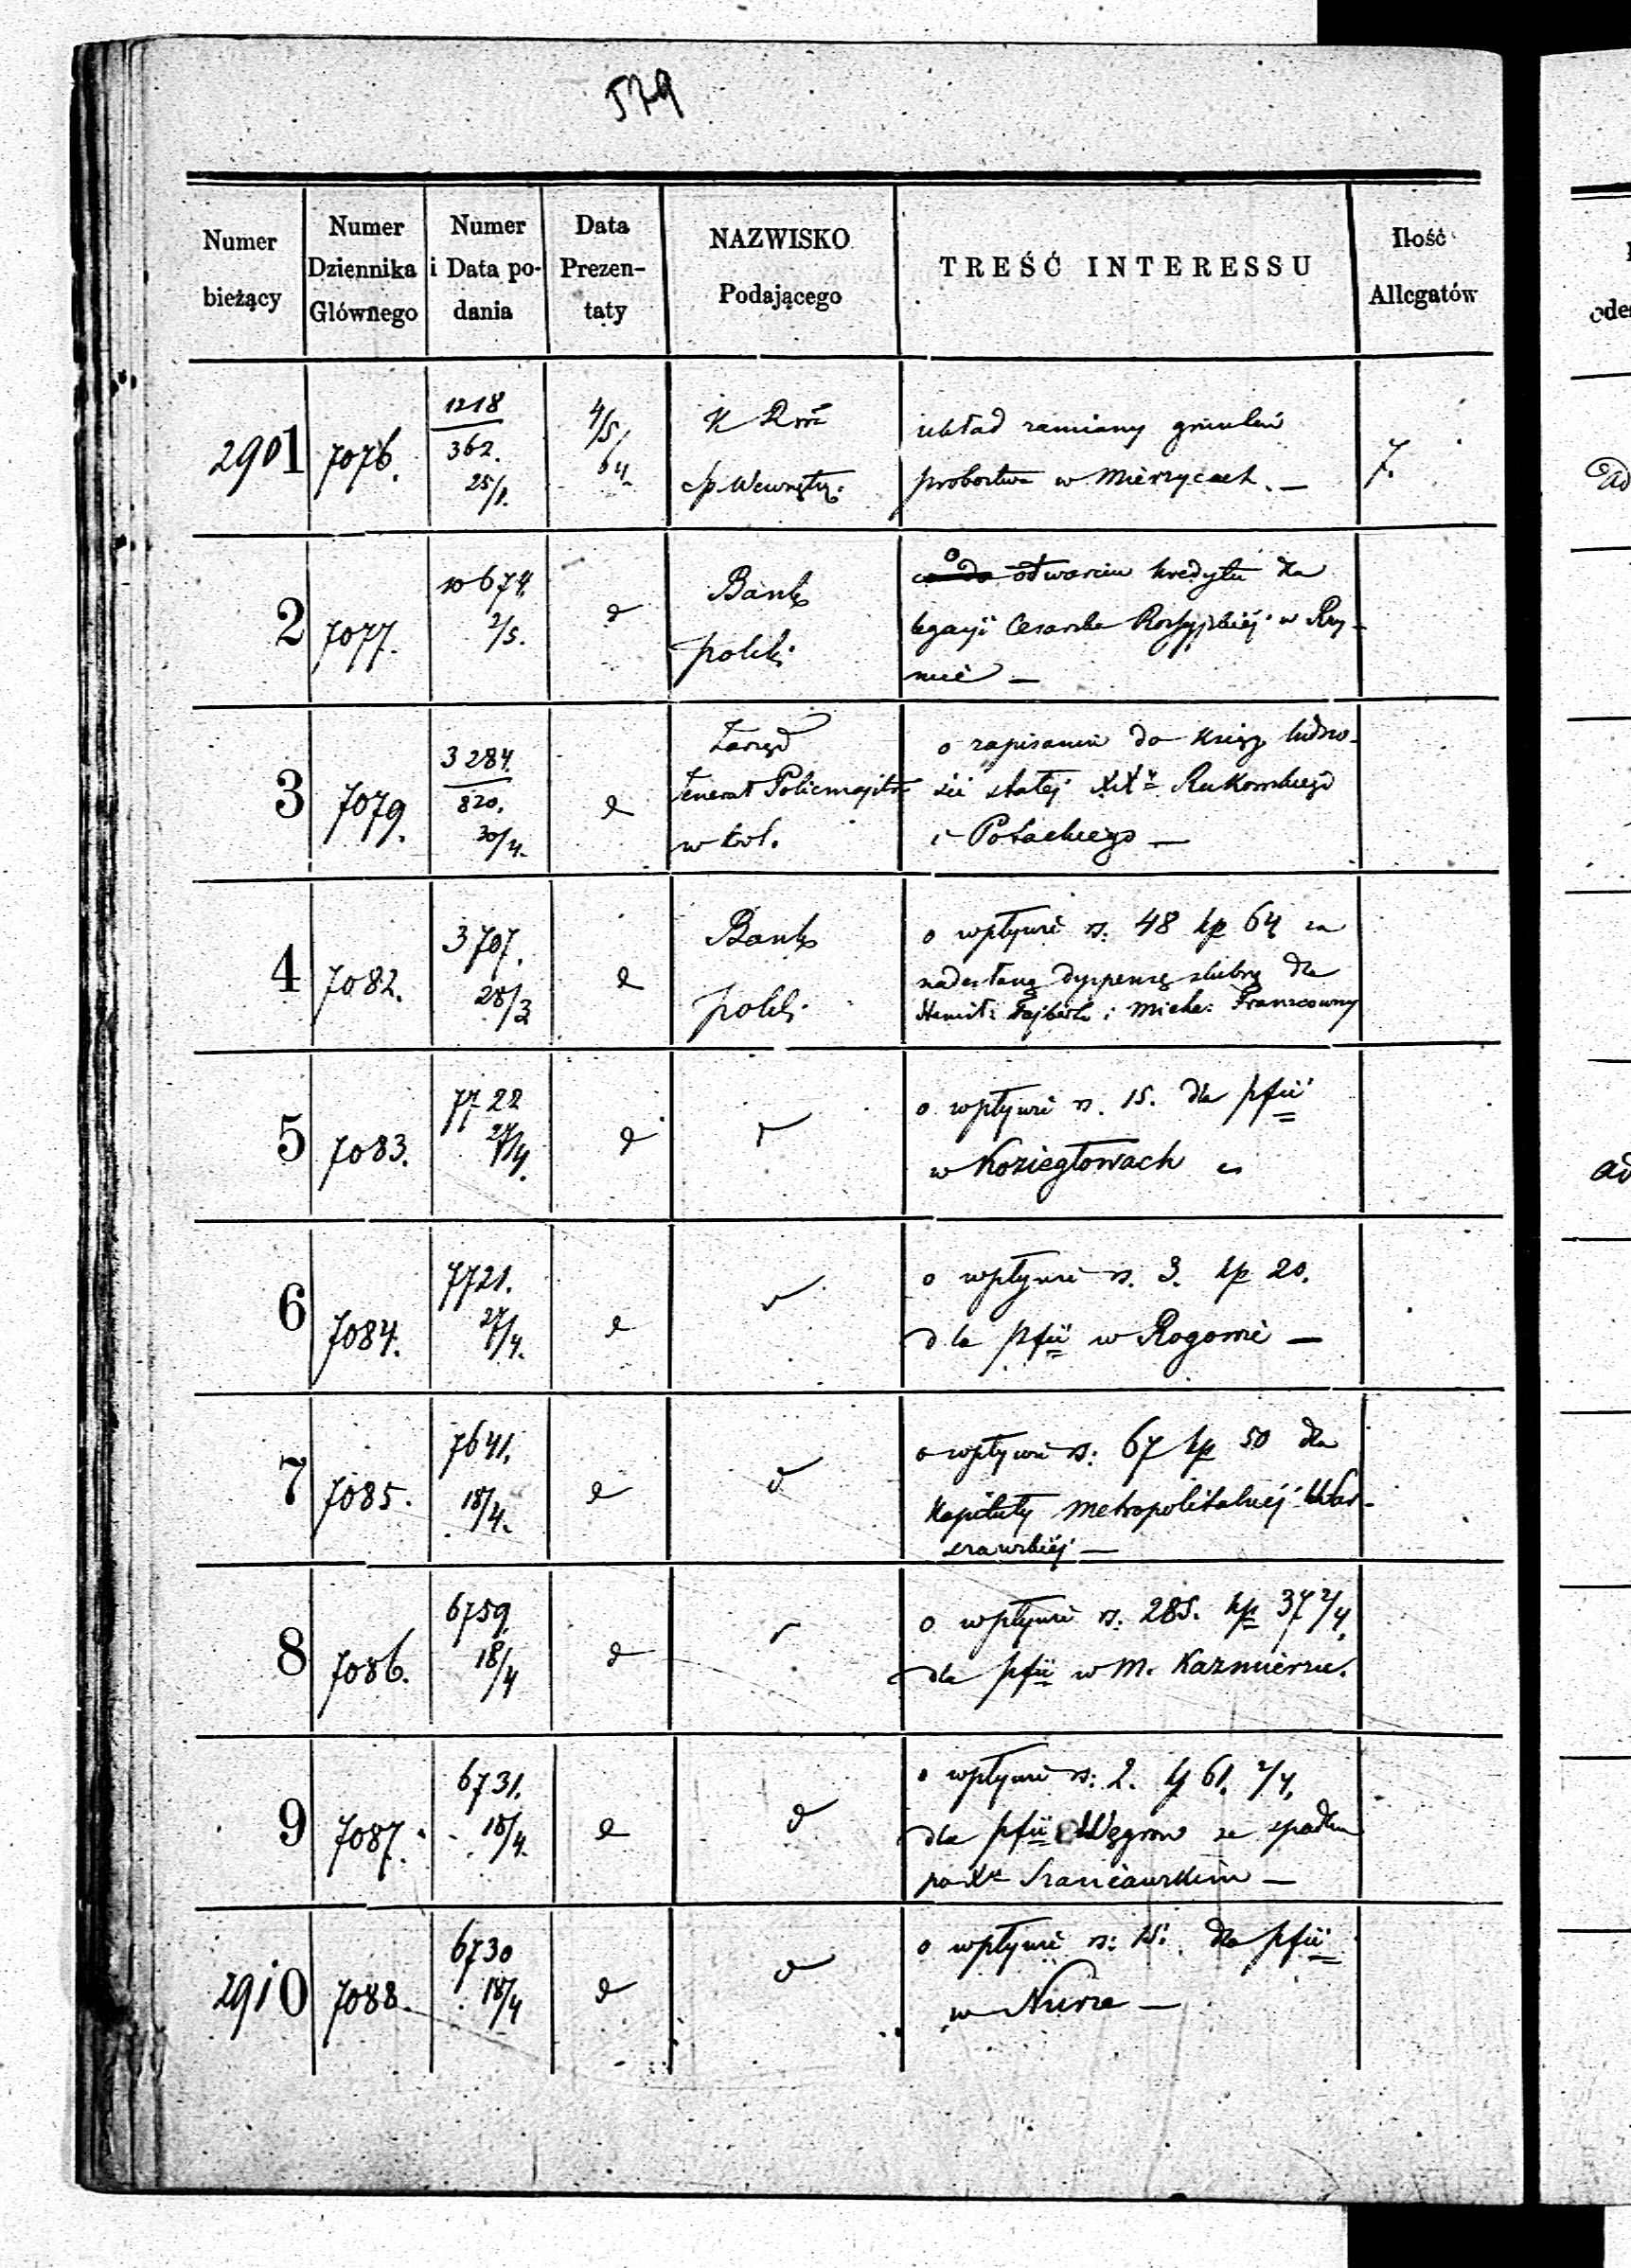 579
Numer bieżący
Numer Dziennika Głównego
Numer i Data podania
Data Prezentaty
NAZWISKO Podającego
TREŚĆ INTERESSU
Ilość Allegatów
2901 7076. 1218 4/5 K R
362. 64 układ zamiany gruntów
25/1. sp. Wewnętrz. probostwa w Mierzycach. — 7.
2 7077. 10674. Bank o otwarciu kredytu dla
2/5. polski legacyi Cesarsko Rossyjskiéj w Rzy-
mie —
3 7079. 3284. Zarząd o zapisanie do ksiąg ludno-
820. Jenerał Policmajstra ści stałej XX Rutkowskiego
30/4. w Król. i Potockiego —
4 7082. 3707. Bank o wpływie rs: 48 kp 64 za
28/3 polski nadesłaną dyspensę ślubną dla
i Franzcowny
5 7083. 7722 o wpływie rs. 15. dla pfii
27/4. w Koziegłowach
6 7084. 7721. o wpływie rs. 3. kp 20.
27/4. dla pfii w Rogowie —
7 7085. 7641. o wpływie rs: 67 kp 50 dla
18/4. Kapituły Metropolitalnéj War-
szawskiéj —
8 7086. 6759. o wpływie rs. 285. kp 37 2/4.
18/4 dla pfii w M. Kazmierzu.
9 7087. 6731. o wpływie rs: 2. kp 61. 2/4.
18/4. dla pfii Węgrow ze spadku
po Xu —
2910 7088. 6730 o wpływie rs: 15. dla pfii
18/4 w Nurze —